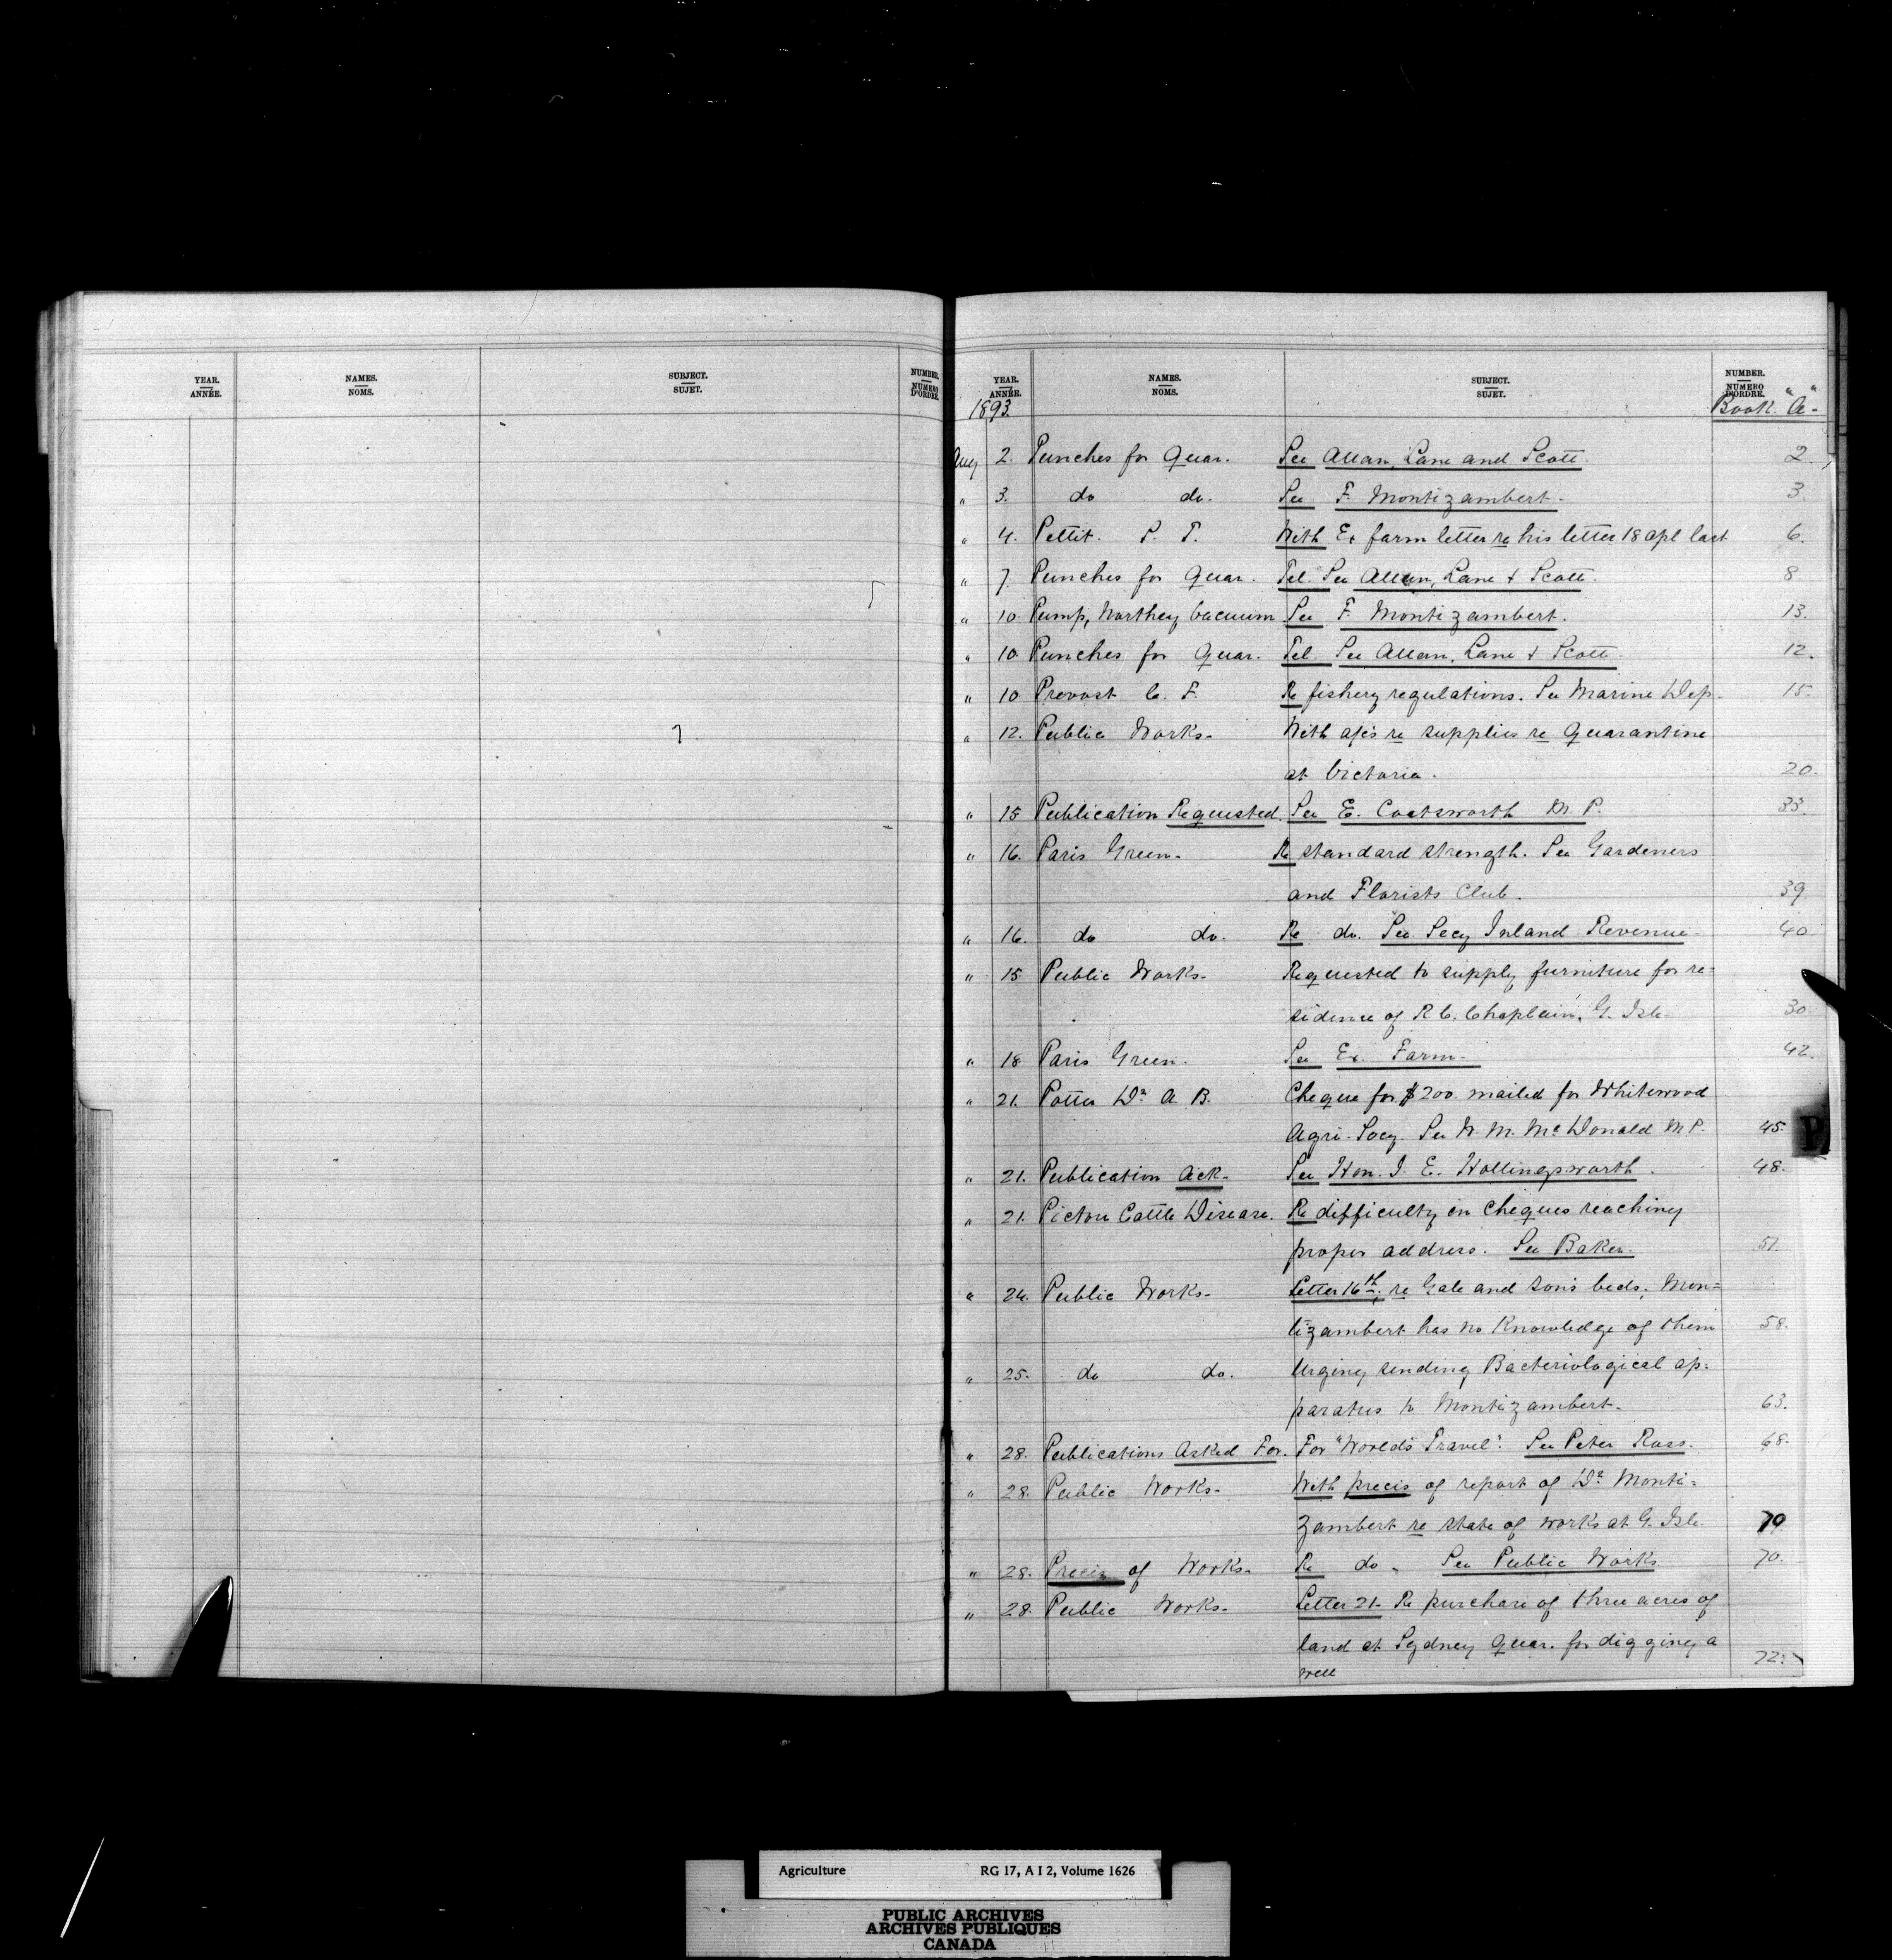 YEAR. NAMES. SUBJECT. NUMBER.
ANNÉE. NOMS. SUJET. NUMÉRO D'ORDRE.
YEAR. NAMES. SUBJECT. NUMBER.
ANNÉE. NOMS. SUJET. NUMÉRO D'ORDRE.
1893. Book "A"
Aug 2. Punches for Quar. See Allan, Lane and Scott. 2.
" 3. do do. See F. Montizambert. 3
" 4. Pettit. S. T. With Ex farm letter re his letter 18 Apl last 6.
" 7. Punches for Quar. Tel. See Allan, Lane & Scott. 8
" 10. Pump, Northey Vacuum See F. Montizambert. 13.
" 10 Punches for Quar. Tel. See Allan, Lane & Scott. 12.
" 10 Provost C. F. Re fishery regulations. See Marine Dep. 15.
" 12. Public Works. With a/cs re supplies re Quarantine
at Victoria. 20.
" 15 Publication Requested. See E. Coatsworth M. P. 33.
" 16. Paris Green. Re standard strength. See Gardeners
and Florists Club. 39.
" 16. do do. Re do. See Secy Inland Revenue. 40.
" 15 Public Works. Requested to supply furniture for re=
sidence of R C. Chaplain, G. Isle. 30.
" 18 Paris Green. See Ex. Farm. 42.
" 21. Potter Dr A B. Cheque for $200. mailed for Whitewood
Agri. Socy. See W. M. McDonald M P. 45.
" 21. Publication Ack. See Hon. I. E. Hollingsworth. 48.
" 21. Pictou Cattle Disease. Re difficulty in Cheques reaching
proper address. See Baker. 51.
" 24. Public Works. Letter 16th, re Gale and Sons beds, Mon=
tizambert has no Knowledge of them 58.
" 25. do do. Urging sending Bacteriological ap=
paratus to Montizambert. 63.
" 28. Publications Asked For. For "World's Travel". See Peter Ross. 68.
" 28. Public Works. With precis of report of Dr. Monti=
zambert re state of works at G. Isle. 70
" 28. Precis of Works. Re do. See Public Works 70.
" 28. Public Works. Letter 21. Re purchase of three acres of
land at Sydney Quar. for digging a
well 72.
P
Agriculture RG 17, A I 2, Volume 1626
PUBLIC ARCHIVES
ARCHIVES PUBLIQUES
CANADA